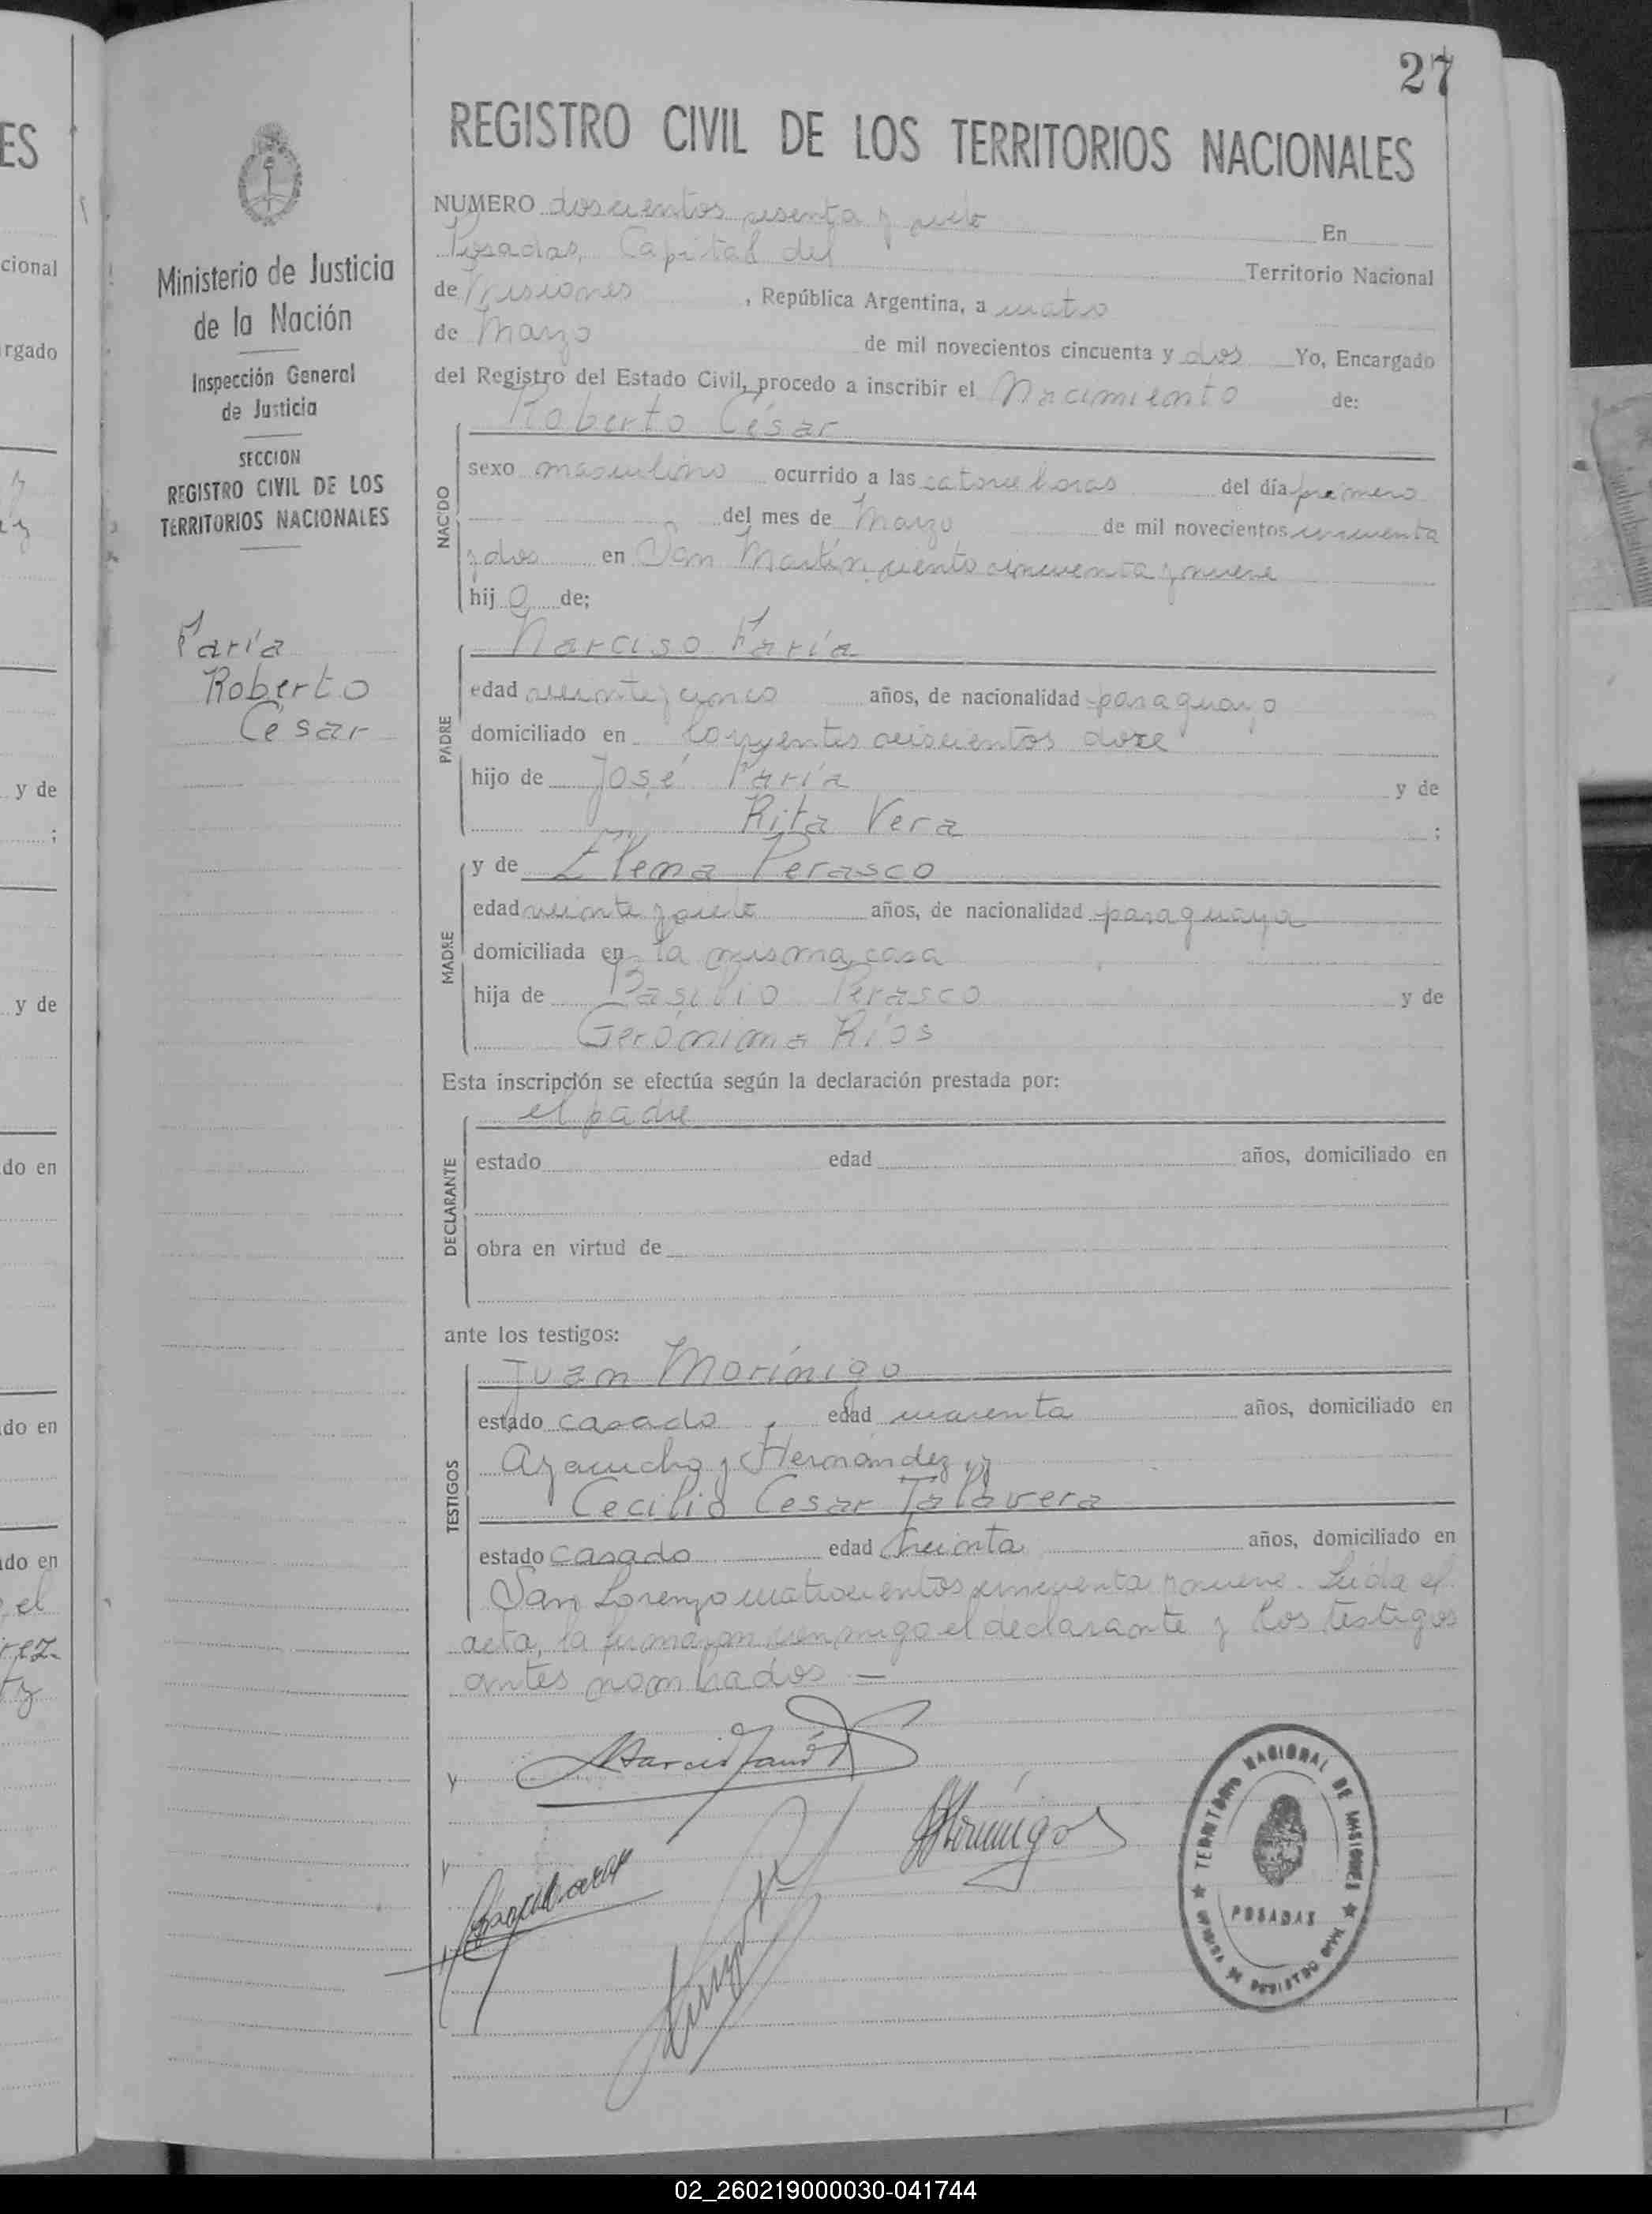 27
REGISTRO CIVIL DE LOS TERRITORIOS NACIONALES
Ministerio de Justicia
de la Nación
Inspección General
de Justicia
SECCION
REGISTRO CIVIL DE LOS
TERRITORIOS NACIONALES
Faría
Roberto
César
NUMERO doscientos sesenta y siete En
Posadas, Capital del Territorio Nacional
de Misiones, República Argentina, a cuatro
de Marzo de mil novecientos cincuenta y dos Yo, Encargado
del Registro del Estado Civil, procedo a inscribir el Nacimiento de:
NACIDO
Roberto César
sexo masculino ocurrido a las catorce horas del día primero
del mes de Marzo de mil novecientos cincuenta
y dos en San Martín ciento cincuenta y nueve
hijo de;
PADRE
Narciso Faría
edad veinte y cinco años, de nacionalidad paraguayo
domiciliado en Corrientes seiscientos doce
hijo de José Faría y de
Rita Vera ;
MADRE
y de Elena Perasco
edad veinte y siete años, de nacionalidad paraguaya
domiciliada en la misma casa
hija de Basilio Perasco y de
Gerónima Ríos
Esta inscripción se efectúa según la declaración prestada por:
DECLARANTE
el padre
estado edad años, domiciliado en
obra en virtud de
ante los testigos:
TESTIGOS
Juan Morínigo
estado casado, edad cuarenta años, domiciliado en
Ayacucho y Hernández, y
Cecilio Cesar Talavera
estado casado edad treinta años, domiciliado en
San Lorenzo cuatrocientos cincuenta y nueve. Leída el
acta, la firmaron conmigo el declarante y los testigos
antes nombrados =
TERRITORIO NACIONAL DE MISIONES
POSADAS
OFICINA DE REGISTRO CIVIL
ES
cional
rgado
y de
;
y de
do en
do en
do en
el
rez.
02_260219000030-041744